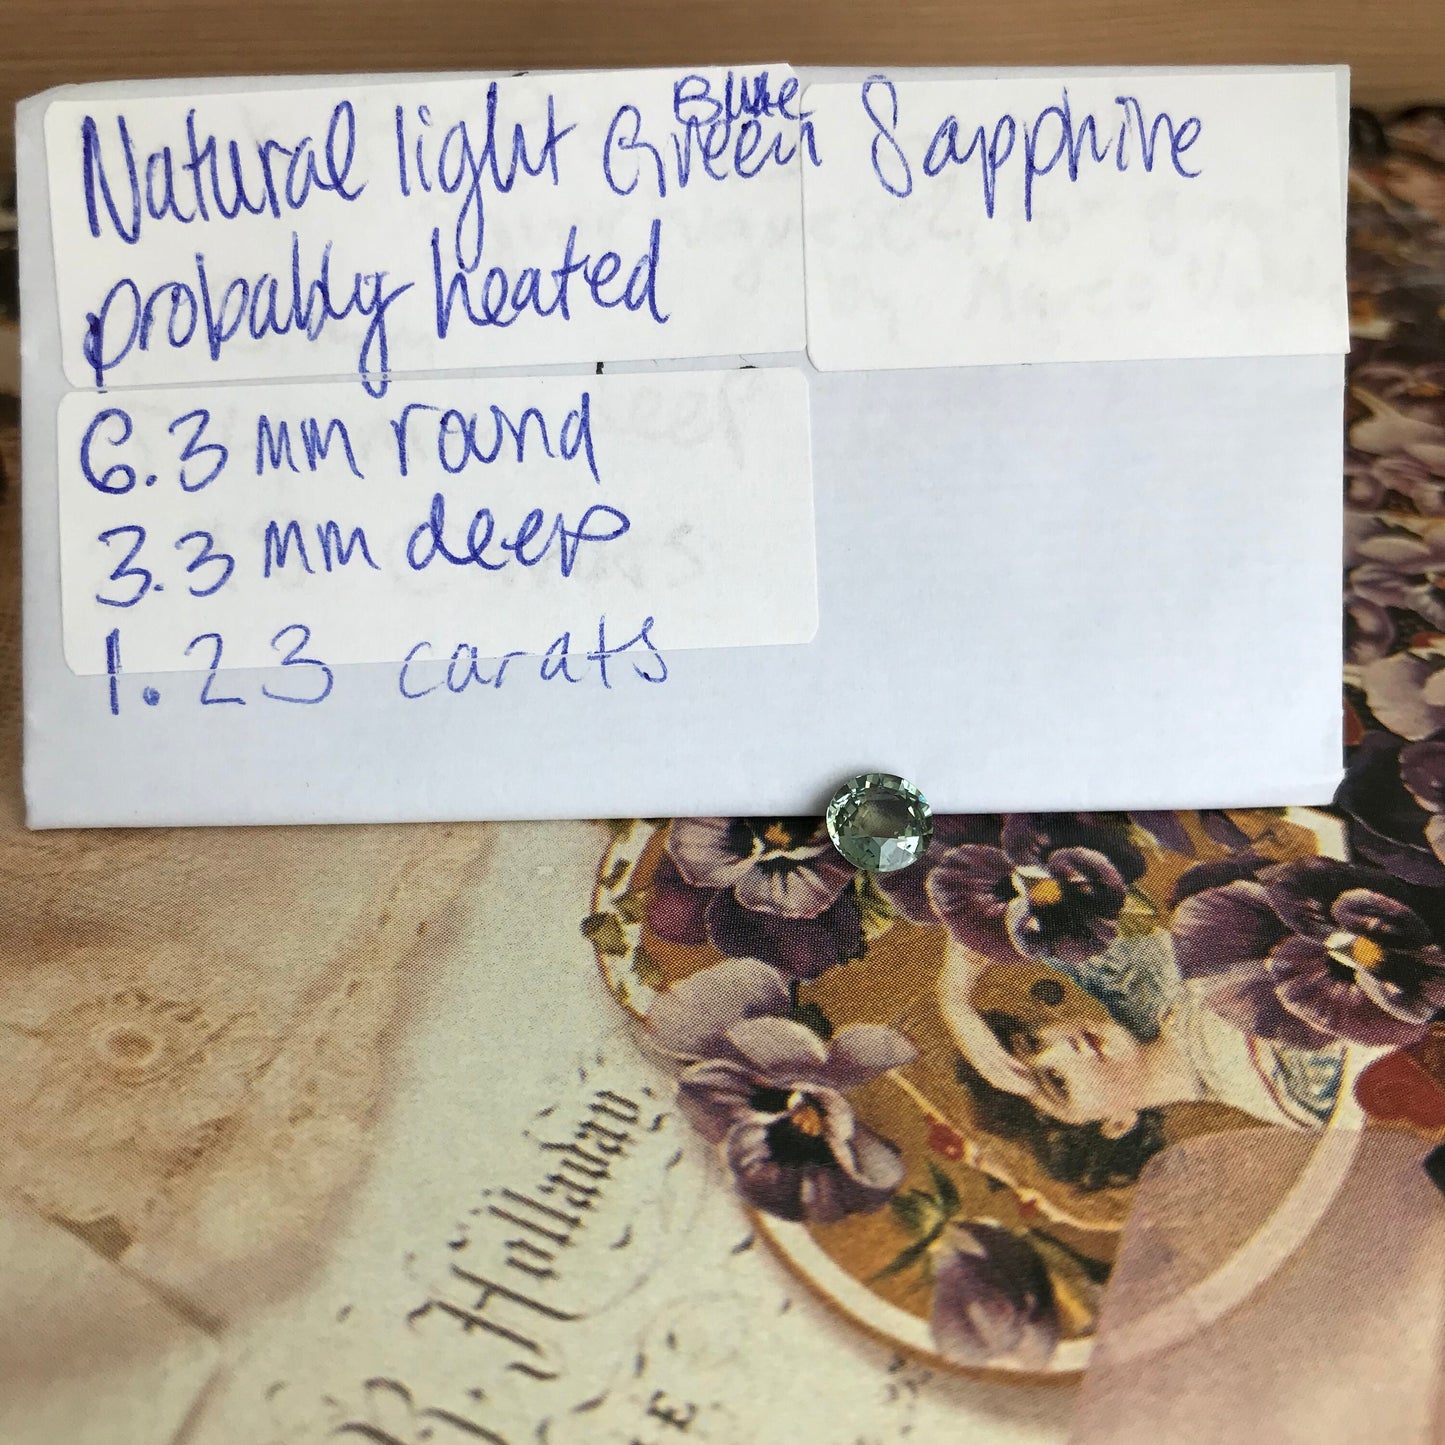 Natural light Green Blue Sapphire
probably heated
6.3 mm round
3.3 mm deep
1.23 carats
R. Holladay